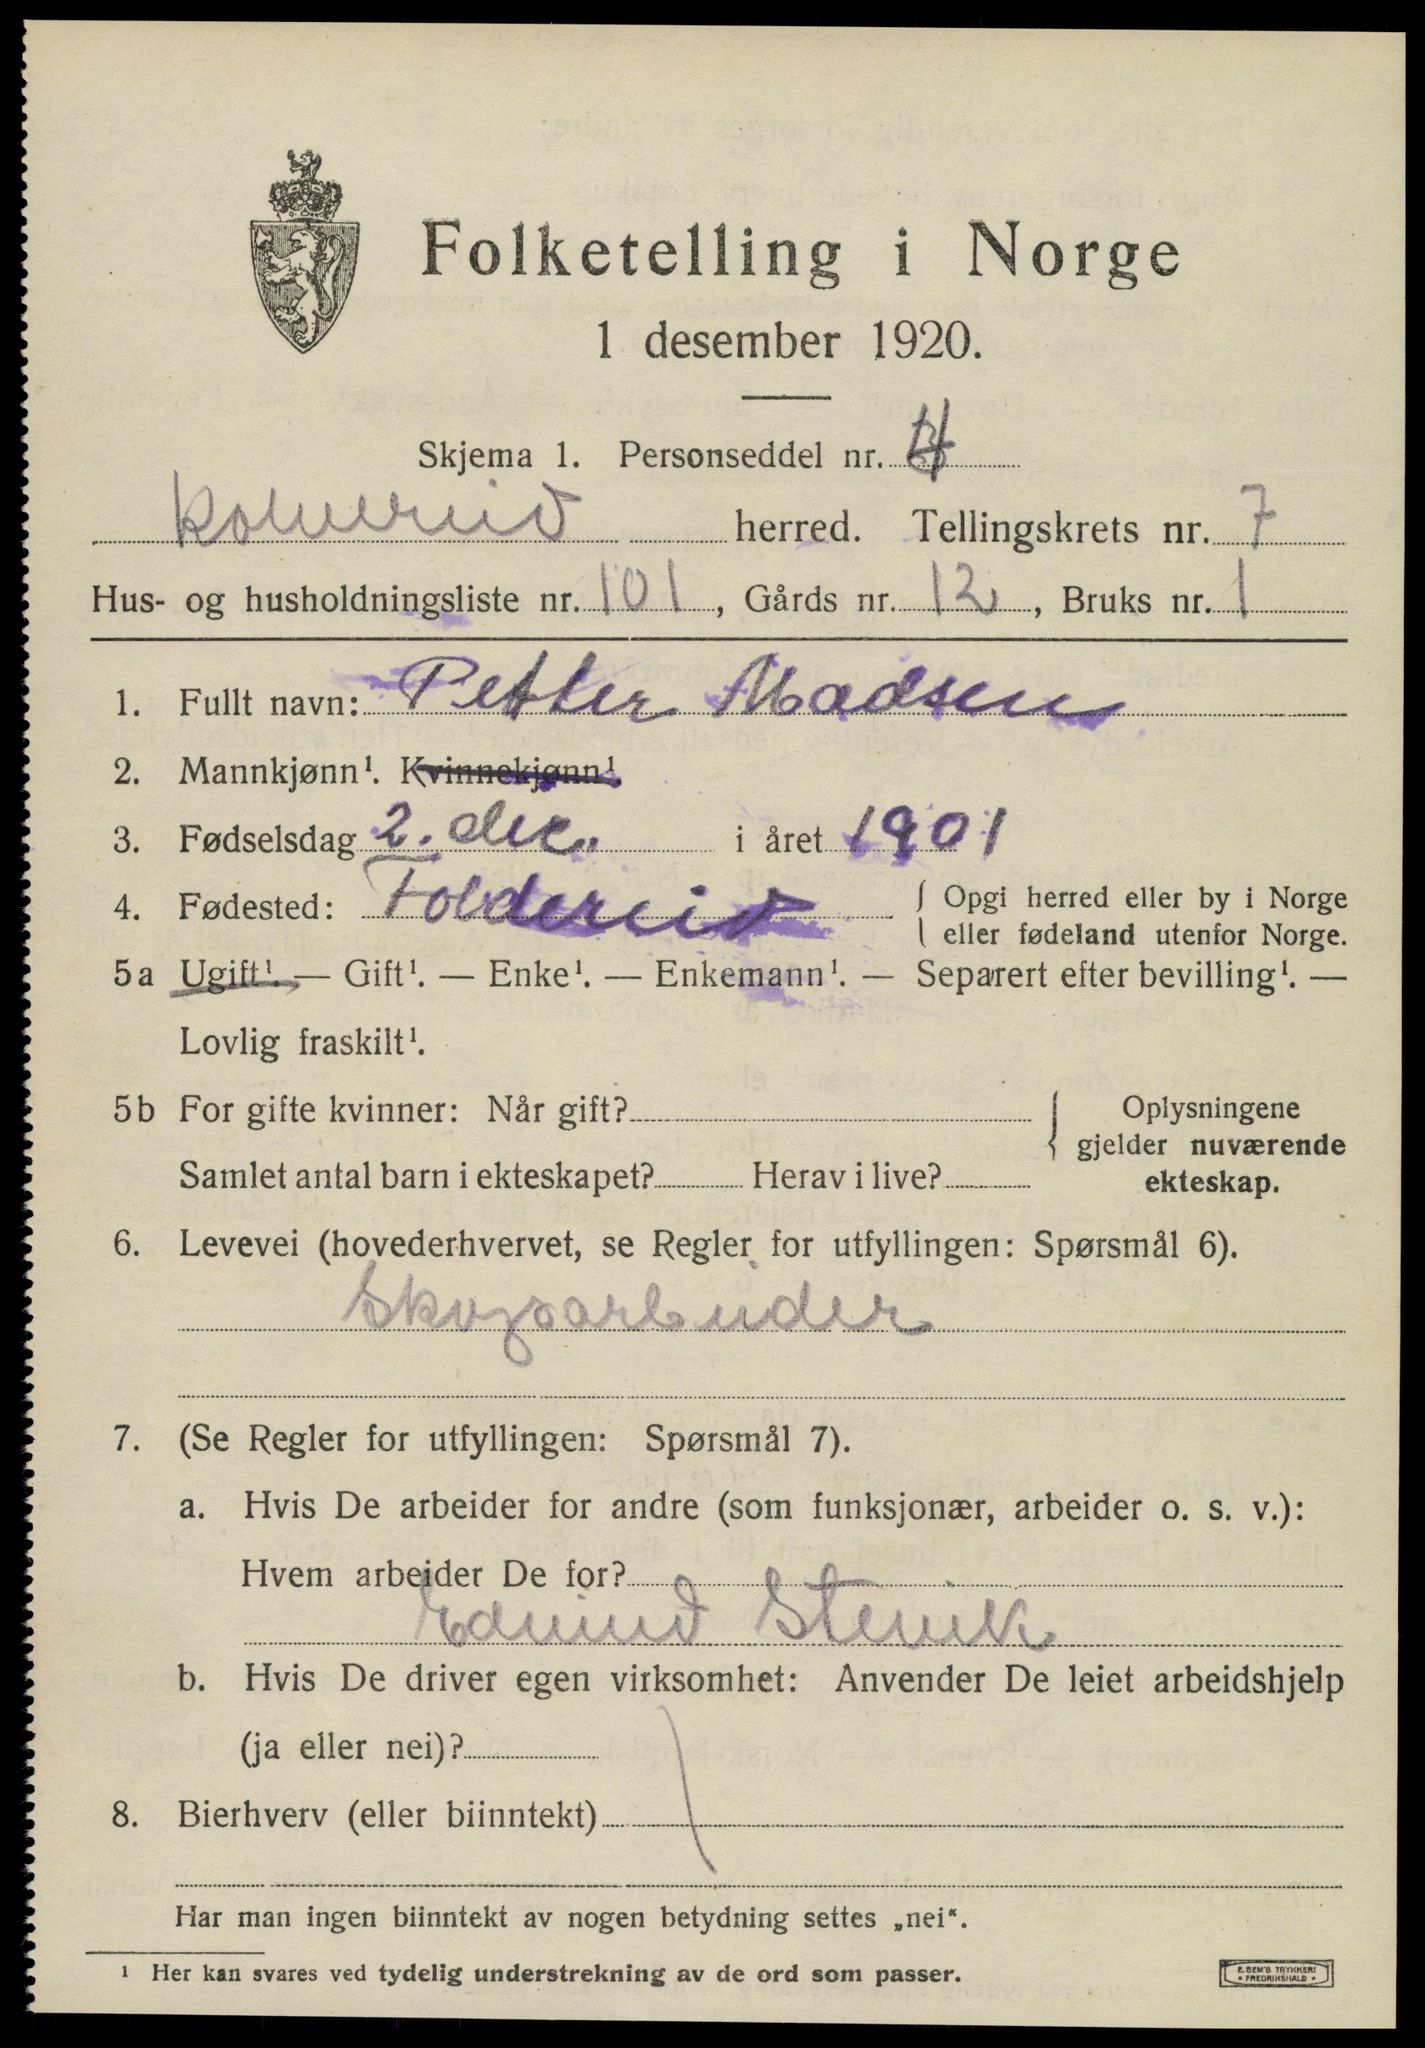 Folketelling i Norge
1 desember 1920.
Skjema 1. Personseddel nr. 4
Kolvereid herred. Tellingskrets nr. 7
Hus- og husholdningsliste nr. 101, Gårds nr. 12, Bruks nr. 1
1. Fullt navn: Petter Madsen
2. Mannkjønn¹. Kvinnekjønn¹.
3. Fødselsdag 2. dec. i året 1901
4. Fødested: Foldereid { Opgi herred eller by i Norge
eller fødeland utenfor Norge.
5a Ugift¹. — Gift¹. — Enke¹. — Enkemann¹. — Separert efter bevilling¹. —
Lovlig fraskilt¹.
5b For gifte kvinner: Når gift? { Oplysningene
gjelder nuværende
Samlet antal barn i ekteskapet? Herav i live? ekteskap.
6. Levevei (hovederhvervet, se Regler for utfyllingen: Spørsmål 6).
Skogsarbeider
7. (Se Regler for utfyllingen: Spørsmål 7).
a. Hvis De arbeider for andre (som funksjonær, arbeider o. s. v.):
Hvem arbeider De for?
Edmind Stenik
b. Hvis De driver egen virksomhet: Anvender De leiet arbeidshjelp
(ja eller nei)?
8. Bierhverv (eller biinntekt)
Har man ingen biinntekt av nogen betydning settes „nei“.
¹ Her kan svares ved tydelig understrekning av de ord som passer.
E. SEM'S TRYKKERI
• FREDRIKSHALD •